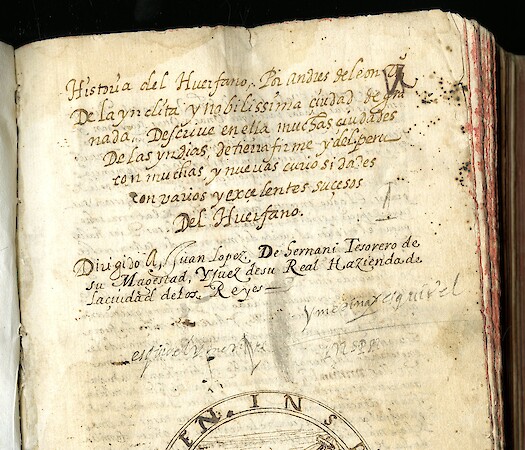 Historia del Huerfano, Por andres de leon
De la ynclita y nobilissima ciudad de gra
nada. Descrive en ella muchas ciudades
De las yndias, de tierra firme y del peru
con muchas, y nuevas curiosidades
con varios y excelentes sucesos
Del Huerfano.
Dirigido A, Juan Lopez, De hernani Tesorero de
su Magestad, Y Juez de su Real Hazienda de
la ciudad de los Reyes
esquivel
EN. INS